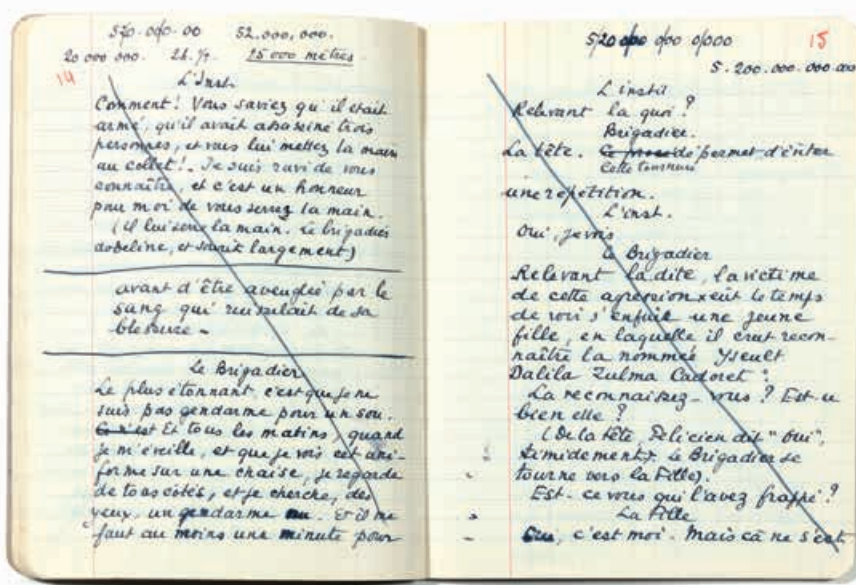 520.000.00 52.000,000.
20 000 000. 26. 15 000 mètres
14
L'Inst.
Comment! Vous saviez qu'il était
armé, qu'il avait assasiné trois
personnes, et vous lui mettez la main
au collet!. Je suis ravi de vous
connaître, et c'est un honneur
pour moi de vous serrez la main.
(il lui serre la main. Le brigadier
dodeline, et sourit largement)
avant d'être aveuglée par le
sang qui ruisselait de sa
blessure -
Le Brigadier
Le plus étonnant, c'est que je ne
suis pas gendarme pour un sou.
Ce n'est Et tous les matins, quand
je m'éveille, et que je vois cet uni-
forme sur une chaise, je regarde
de tous côtés, et je cherche, des
yeux, un gendarme nu. Et il me
faut au moins une minute pour
520 000 000 0000
15
5.200.000.000.000
L'instit
Relevant la quoi?
Brigadier.
La tête. de permet d'éviter
Cette tournure
une répétition.
L'inst.
Oui, je vois
Le Brigadier
Relevant la dite, la victime
de cette agression eut le temps
de voir s'enfuir une jeune
fille, en laquelle il crut recon-
naître la nommée Yseult
Dalila Zulma Cadoret".
La reconnaissez-vous? Est-ce
bien elle?
(De la tête, Félicien dit "Oui",
timidement). Le Brigadier se
tourne vers la Fille).
Est-ce vous qui l'avez frappé?
La Fille
Oui, c'est moi. Mais ça ne s'est